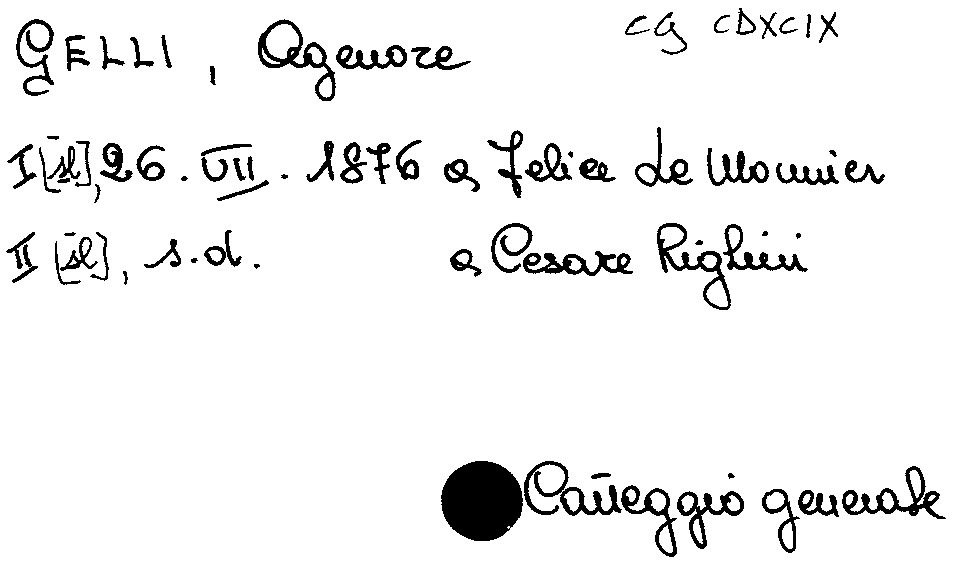 GELLI, Agenore CG CDXCIX
I [sl], 26.VII.1876 a Felice Le Monnier
II [sl], s.d. a Cesare Righini
Carteggio generale